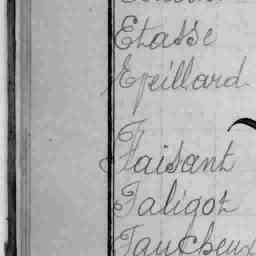 Etasse
Epeillard
F
Faisant
Faligot
Faucheux